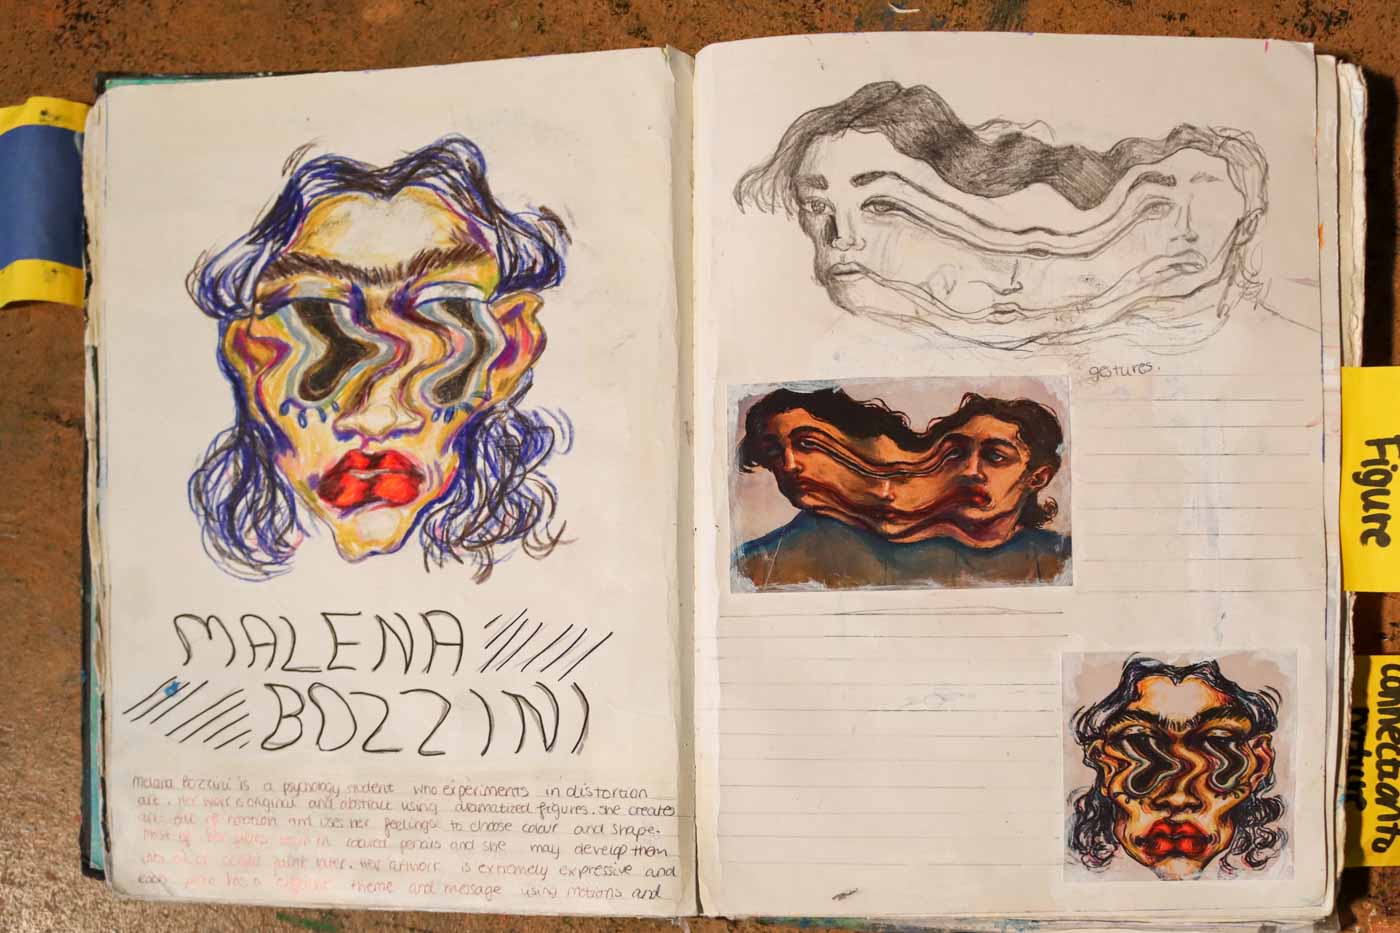 MALENA
BOZZINI
Melana Bozzini is a psychology student who experiments in distortion
art. Her work is original and abstract using dramatized figures. She creates
art out of motion and uses her feelings to choose colour and shape.
Most of her pieces begin in coloured pencils and she may develop them
into oil or acrylic paint later. Her artwork is extremely expressive and
each piece has a theme and message using motions and
gestures.
Figure